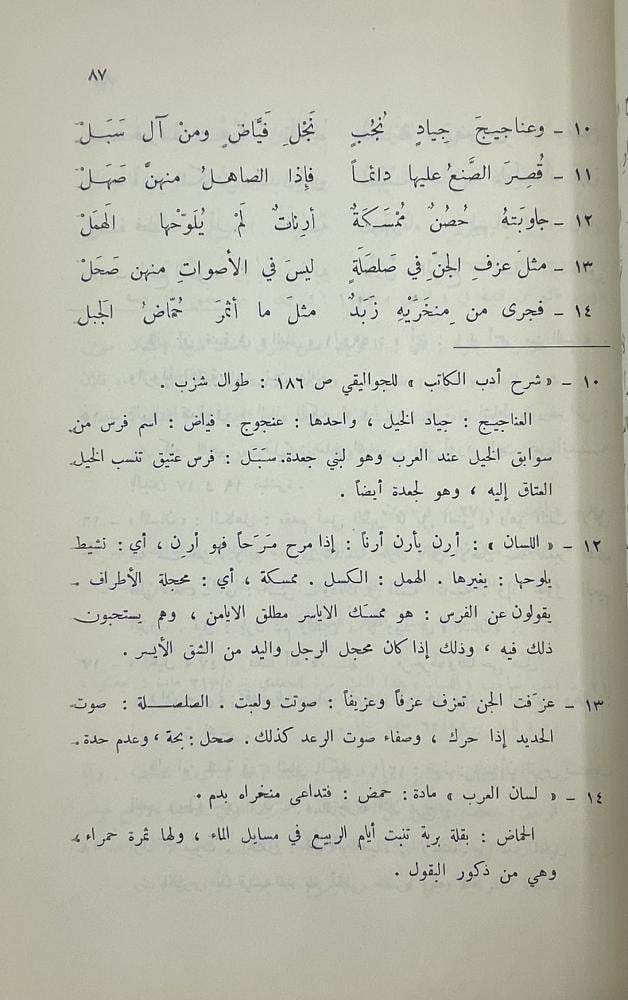 ٨٧
١٠ – وعناجيجَ جِيادٍ نُجُبٍ نَجْلِ فَيَّاضٍ ومنْ آل سَبَلْ
١١ – قُصِرَ الصَّنعُ عليها دائماً فإذا الصاهلُ منهنَّ صَهَلْ
١٢ – جاوبَتهُ حُصُنٌ مُمْسَكَةٌ أرِناتٌ لمْ يُلَوِّحْها الهَمَلْ
١٣ – مثلَ عزفِ الجنّ في صَلصَلَةٍ ليسَ في الأصواتِ منهن صَحَلْ
١٤ – فجرى من مِنخَرَيْهِ زَبَدٌ مثلَ ما أثمرَ حُمّاضُ الجبل
١٠ – « شرح أدب الكاتب » للجواليقي ص ١٨٦ : طوال شزب .
العناجيج : جياد الخيل ، واحدها : عنجوج . فياض : اسم فرس من
سوابق الخيل عند العرب وهو لبني جعدة. سَبَل : فرس عتيق تنسب الخيل
العتاق إليه ، وهو لجعدة أيضاً .
١٢ – « اللسان » : أرِن يأرن أرناً : إذا مرح مَرَحاً فهو أرِن ، أي : نشيط
يلوحها : يغيرها . الهمل : الكسل . ممسكة ، أي : محجلة الأطراف .
يقولون عن الفرس : هو ممسَك الاياسر مطلق الايامن ، وهم يستحبون
ذلك فيه ، وذلك إذا كان محجل الرجل واليد من الشق الأيسر .
١٣ – عزَفت الجن تعزف عزفاً وعزيفاً : صوتت ولعبت . الصلصلة : صوت
الحديد إذا حرك ، وصفاء صوت الرعد كذلك . صحل : بحة ، وعدم حدة .
١٤ – « لسان العرب » مادة : حمض : فتداعى منخراه بدم .
الحماض : بقلة برية تنبت أيام الربيع في مسايل الماء ، ولها ثمرة حمراء ،
وهي من ذكور البقول .